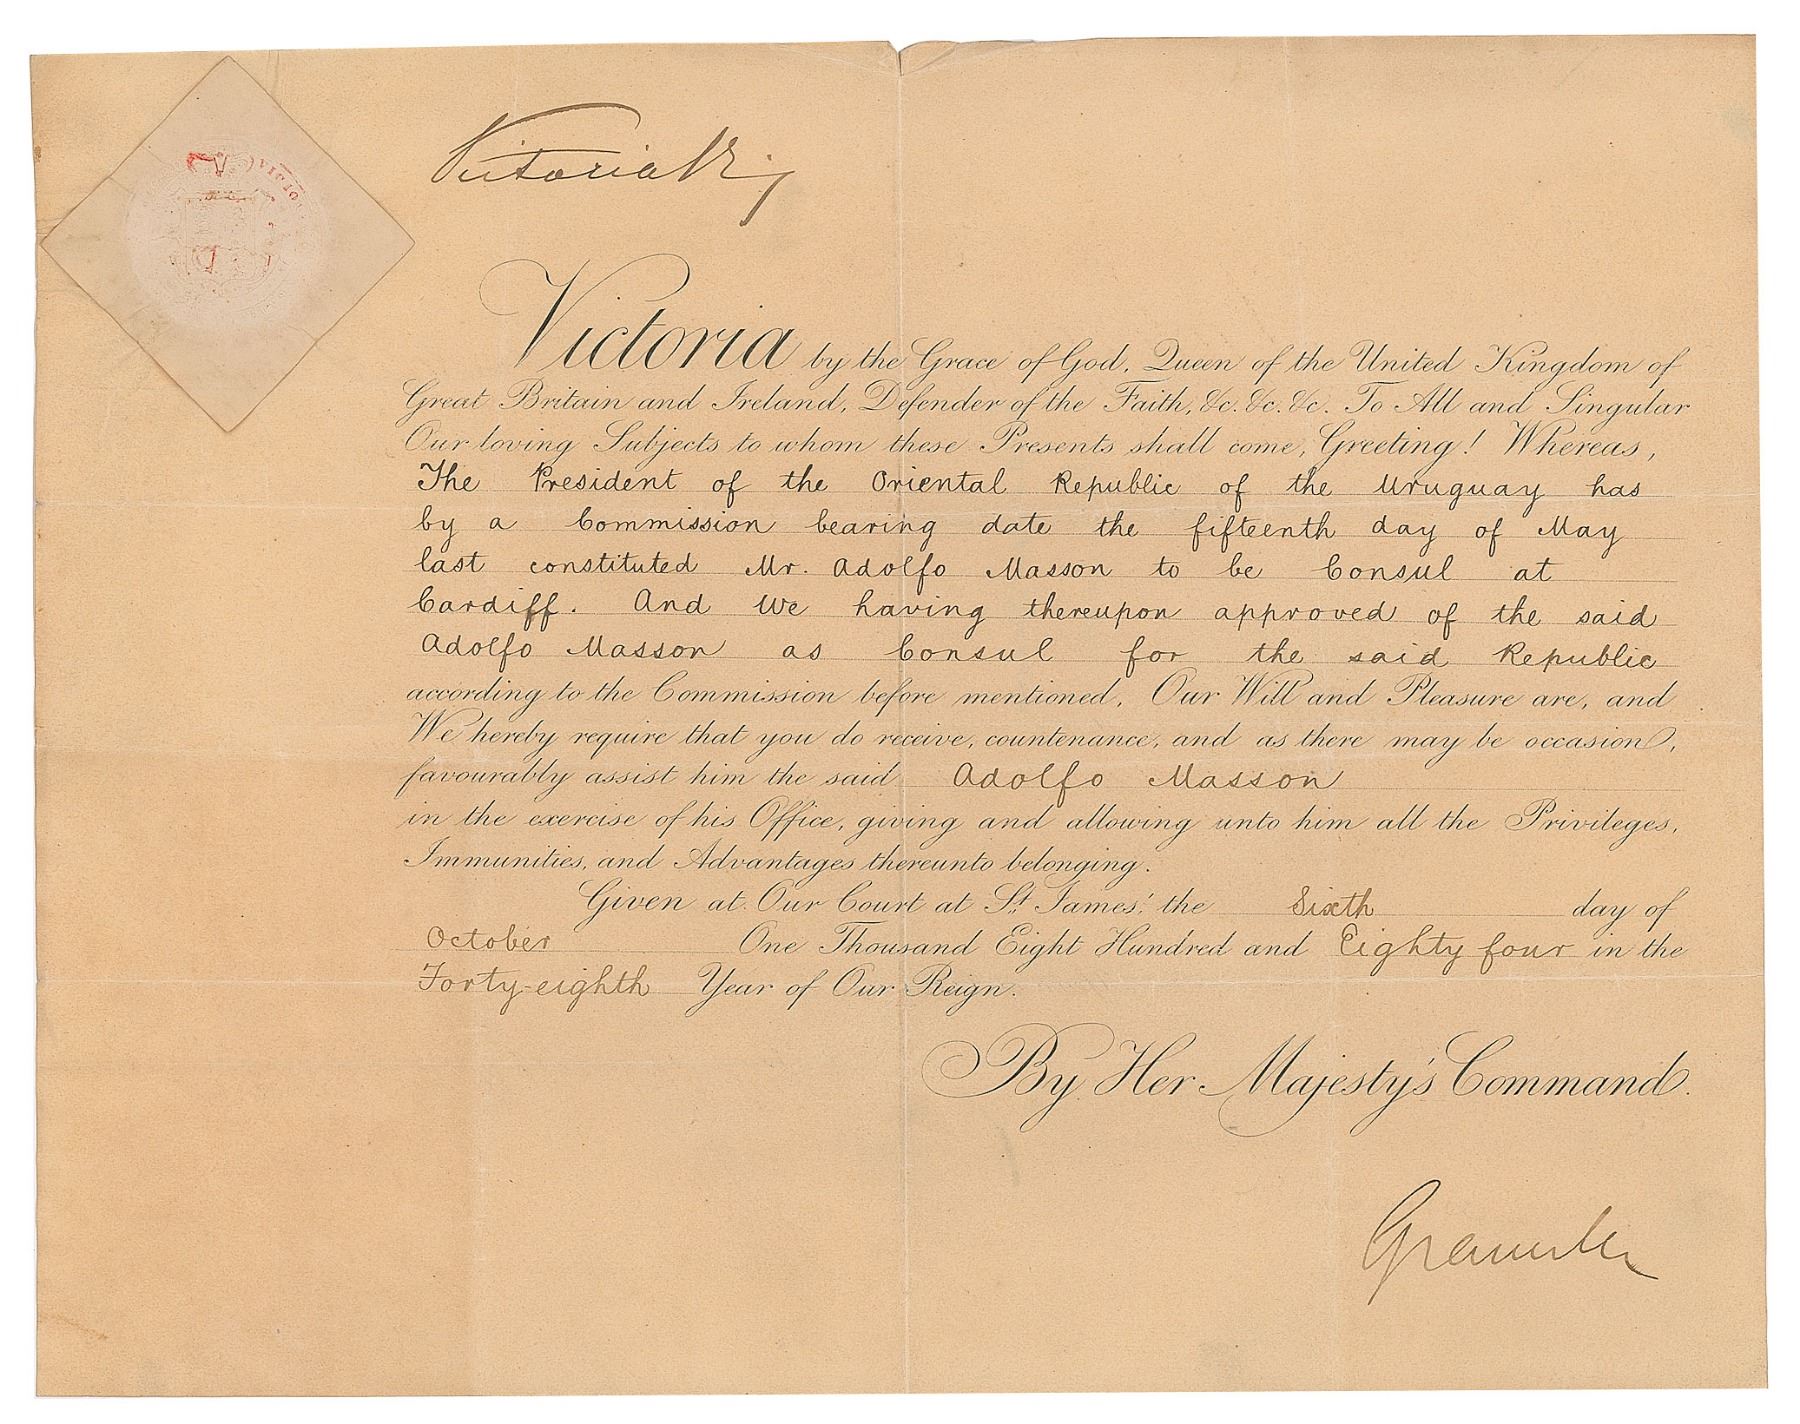 Victoria R i
Victoria by the Grace of God, Queen of the United Kingdom of
Great Britain and Ireland, Defender of the Faith, &c. &c. &c. To All and Singular
Our loving Subjects to whom these Presents shall come, Greeting! Whereas,
The President of the Oriental Republic of the Uruguay has
by a Commission bearing date the fifteenth day of May
last constituted Mr. Adolfo Masson to be Consul at
Cardiff. And We having thereupon approved of the said
Adolfo Masson as Consul for the said Republic
according to the Commission before mentioned, Our Will and Pleasure are, and
We hereby require that you do receive, countenance, and as there may be occasion,
favourably assist him the said Adolfo Masson
in the exercise of his Office, giving and allowing unto him all the Privileges,
Immunities, and Advantages thereunto belonging.
Given at Our Court at St. James', the Sixth day of
October One Thousand Eight Hundred and Eighty four in the
Forty-eighth Year of Our Reign.
By Her Majesty's Command.
Granville